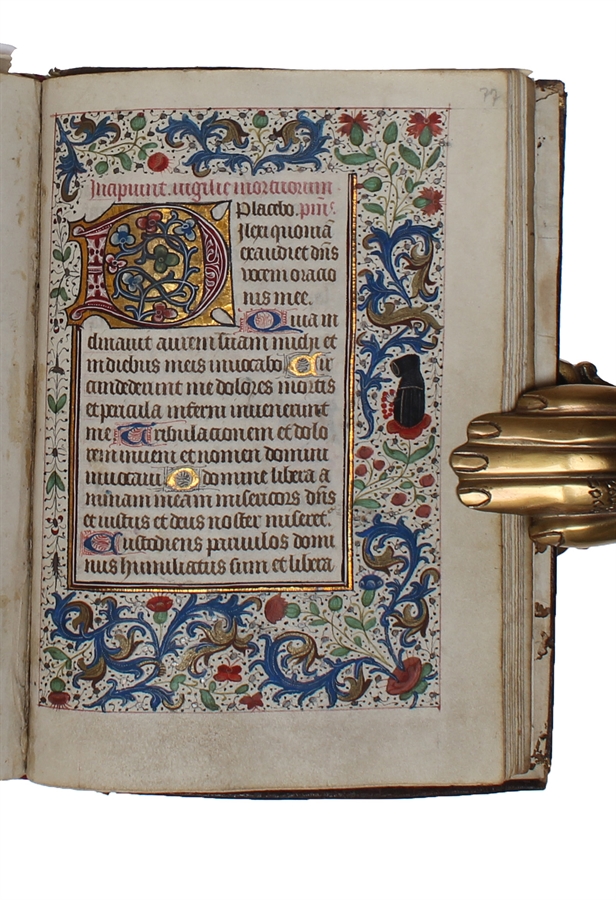 77
Incipiunt vigilie mortuorum
Placebo. pmˢ.
Dilexi quoniā
exaudiet dn̄s
vocem oracio
nis mee.
Quiam
clinavit aurem suam michi et
in diebus meis invocabo Cir
cundederunt me dolores mortis
et pericula inferni invenerunt
me Tribulacionem et dolo
rem inveni et nomen domini
invocavi O domine libera a
nimam meam misericors dn̄s
et iustus et deus noster miseret.
Custodiens parvulos domi
nus humiliatus sum et libera